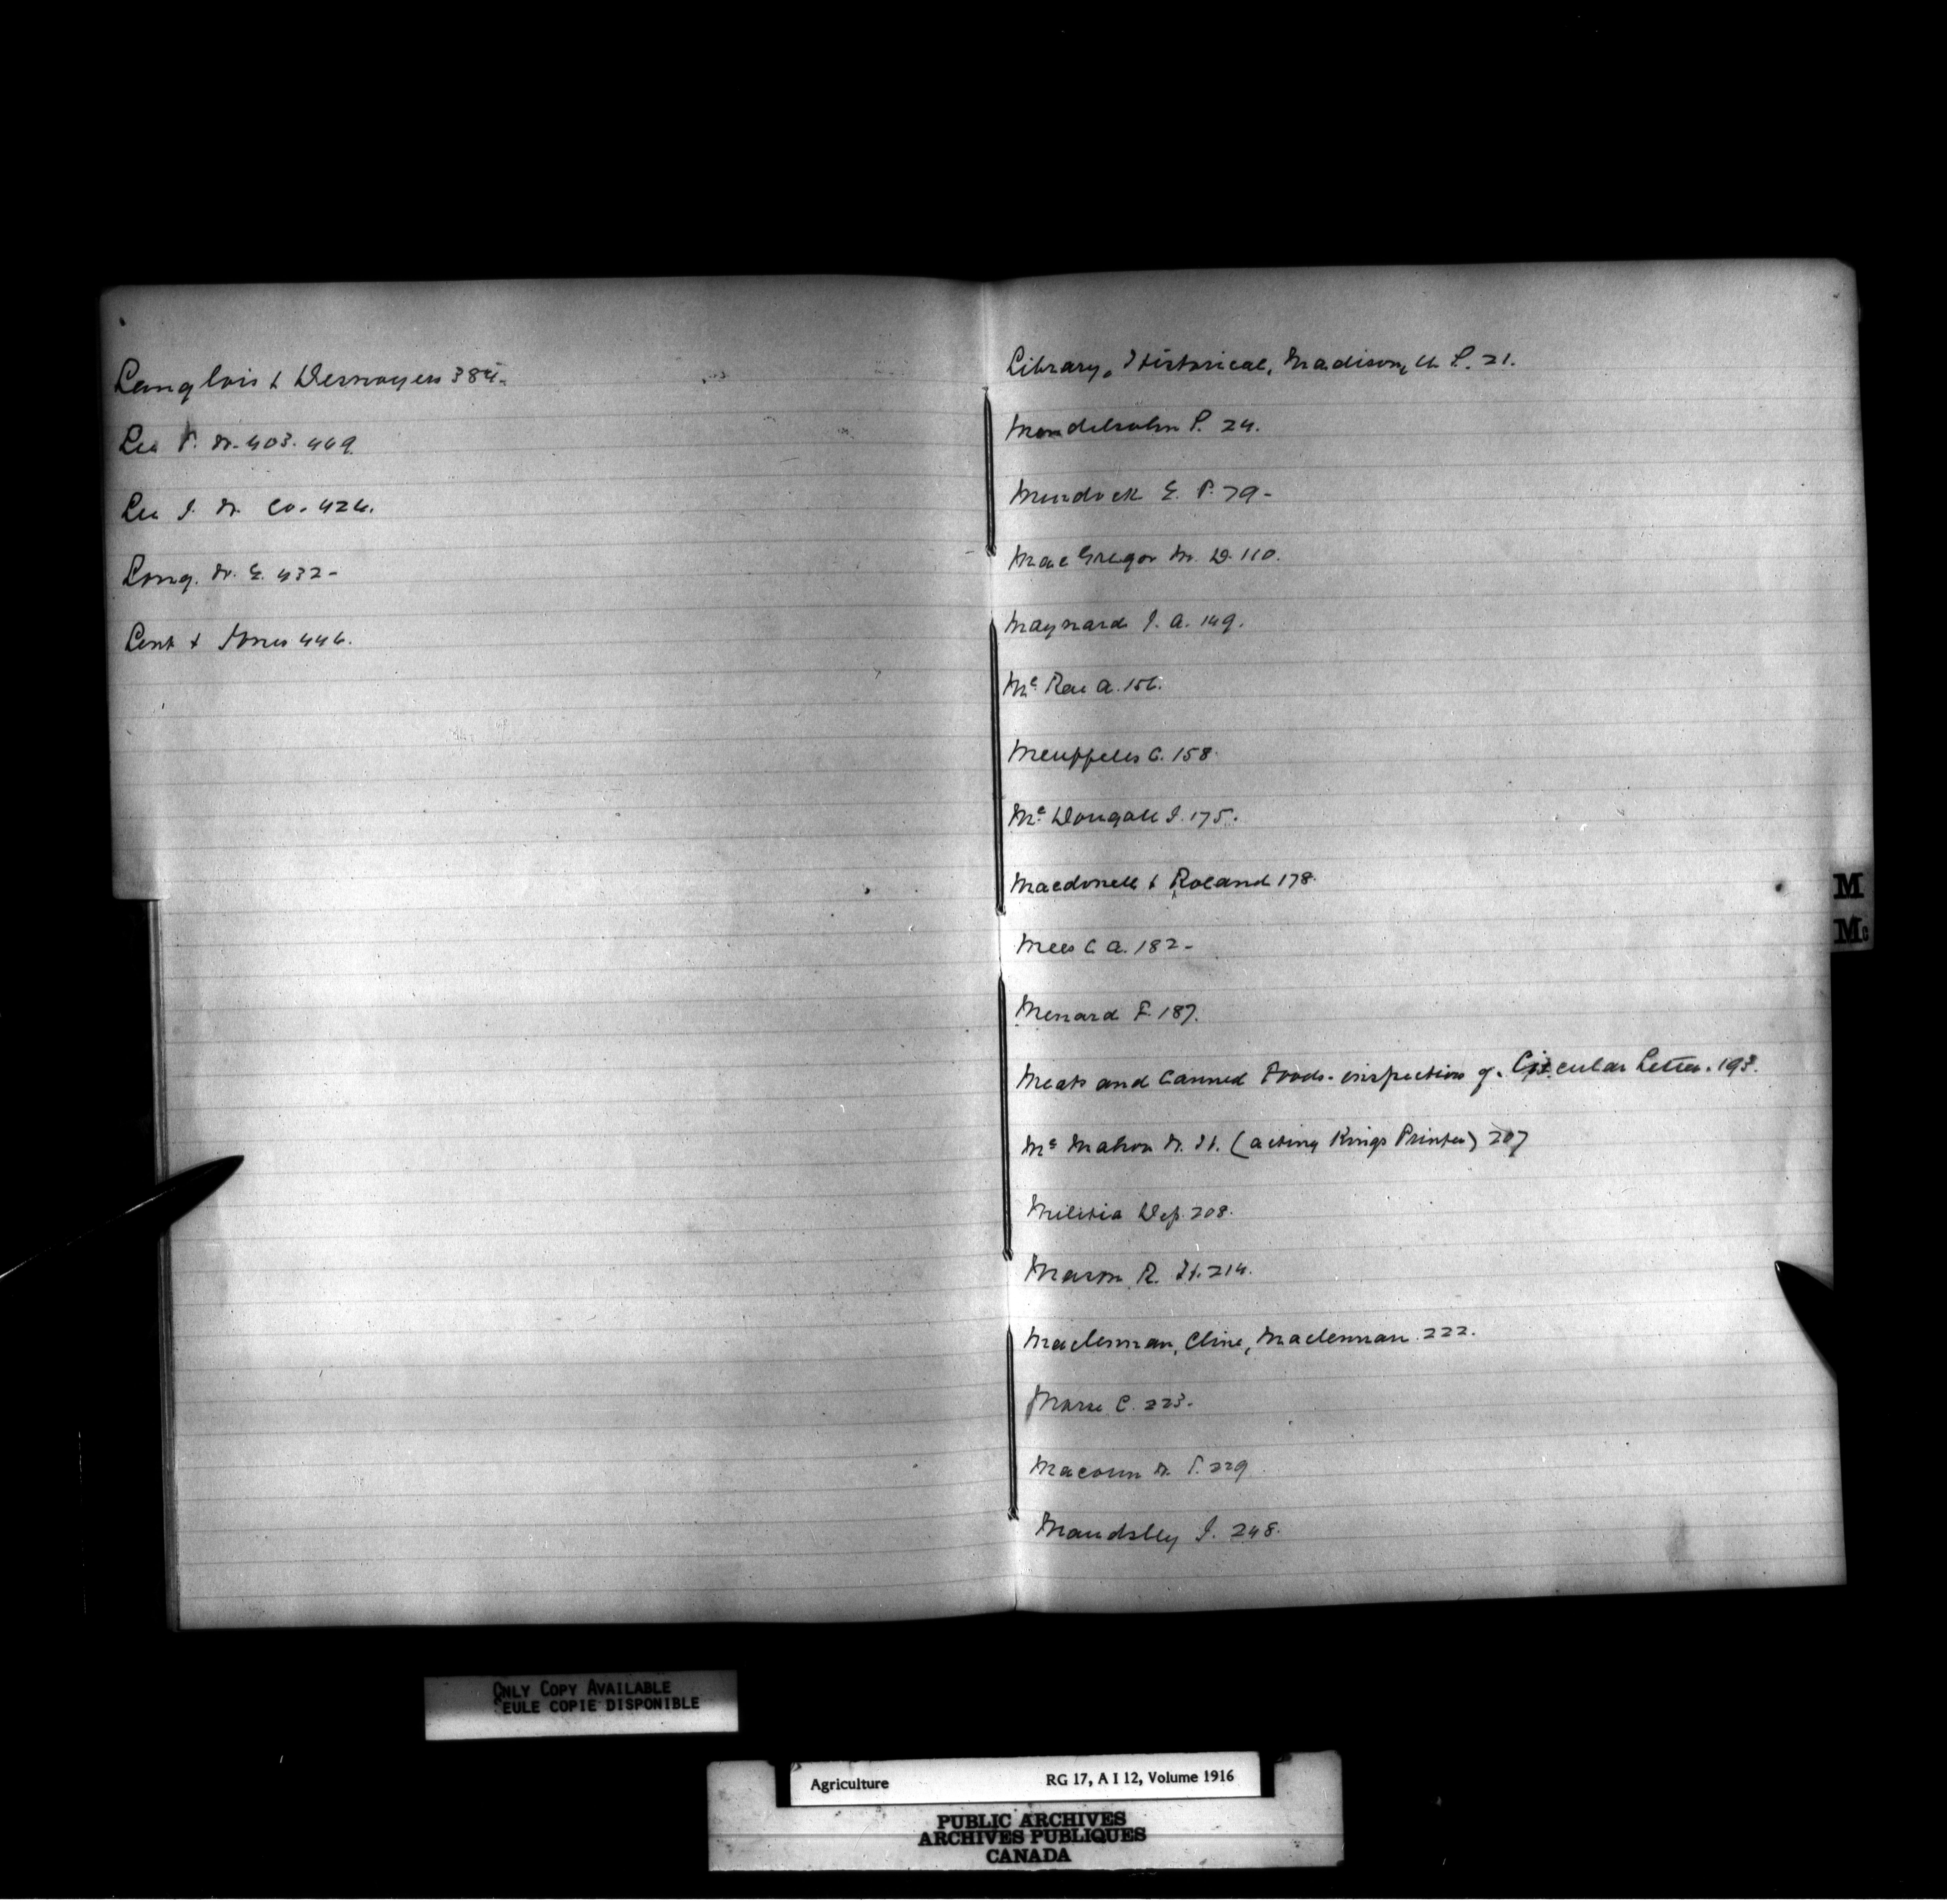 Langlois & Desnoyers 384.
Lea P. W. 403. 449
Lea J. W. Co. 424.
Long. W. E. 432-
Lent & Jones 446.
Library, Historical, Madison, U S. 21.
Mendelsohn S. 24.
Murdock E. P. 79-
Mac Gregor M. D. 110.
Maynard J. A. 149.
Mc Rae A. 156.
Meuffels C. 158.
Mc Dougall J. 175.
Macdonell & Boland 178.
Mees C A. 182-
Menard F. 187.
Meats and Canned Foods. inspection of. Circular Letter. 193.
Mc Mahon W. H. (acting Kings Printer) 207
Militia Dep. 208.
Mason R. H. 214.
Maclennan, Cline, Maclennan. 222.
Morse C. 223.
Macoun W. T. 229
Maudsley J. 248.
M
Mc
ONLY COPY AVAILABLE
SEULE COPIE DISPONIBLE
Agriculture RG 17, A I 12, Volume 1916
PUBLIC ARCHIVES
ARCHIVES PUBLIQUES
CANADA